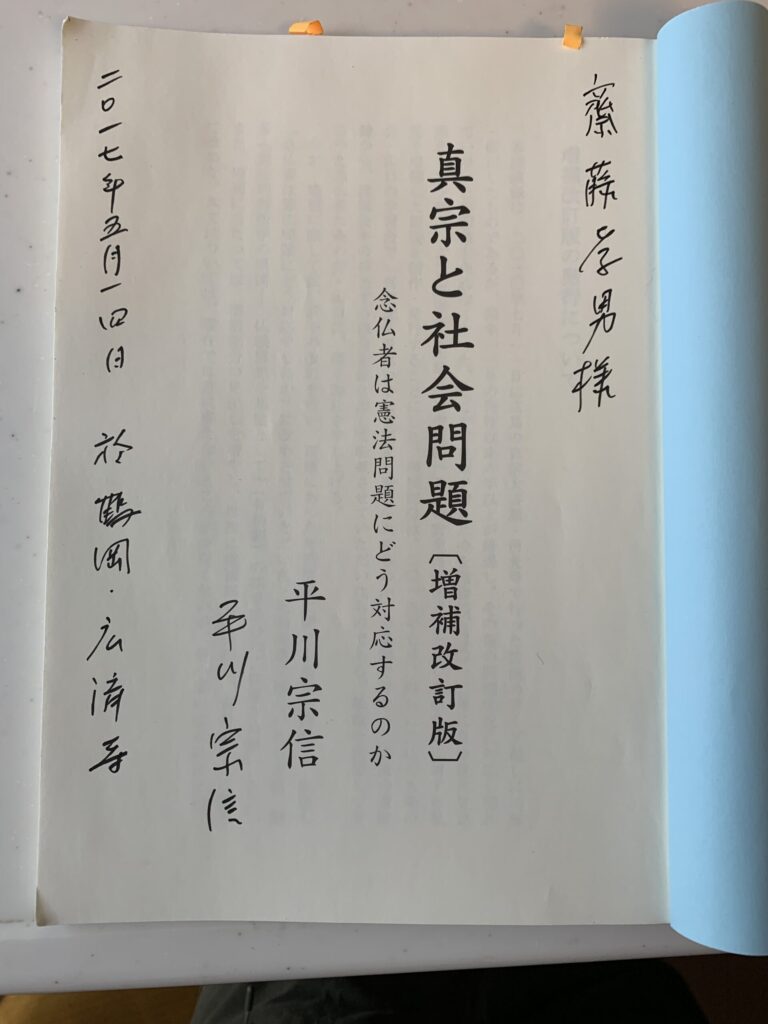 齋藤孝男様
真宗と社会問題〔増補改訂版〕
念仏者は憲法問題にどう対応するのか
平川宗信
平川宗信
二〇一七年五月一四日 於鶴岡・広済寺